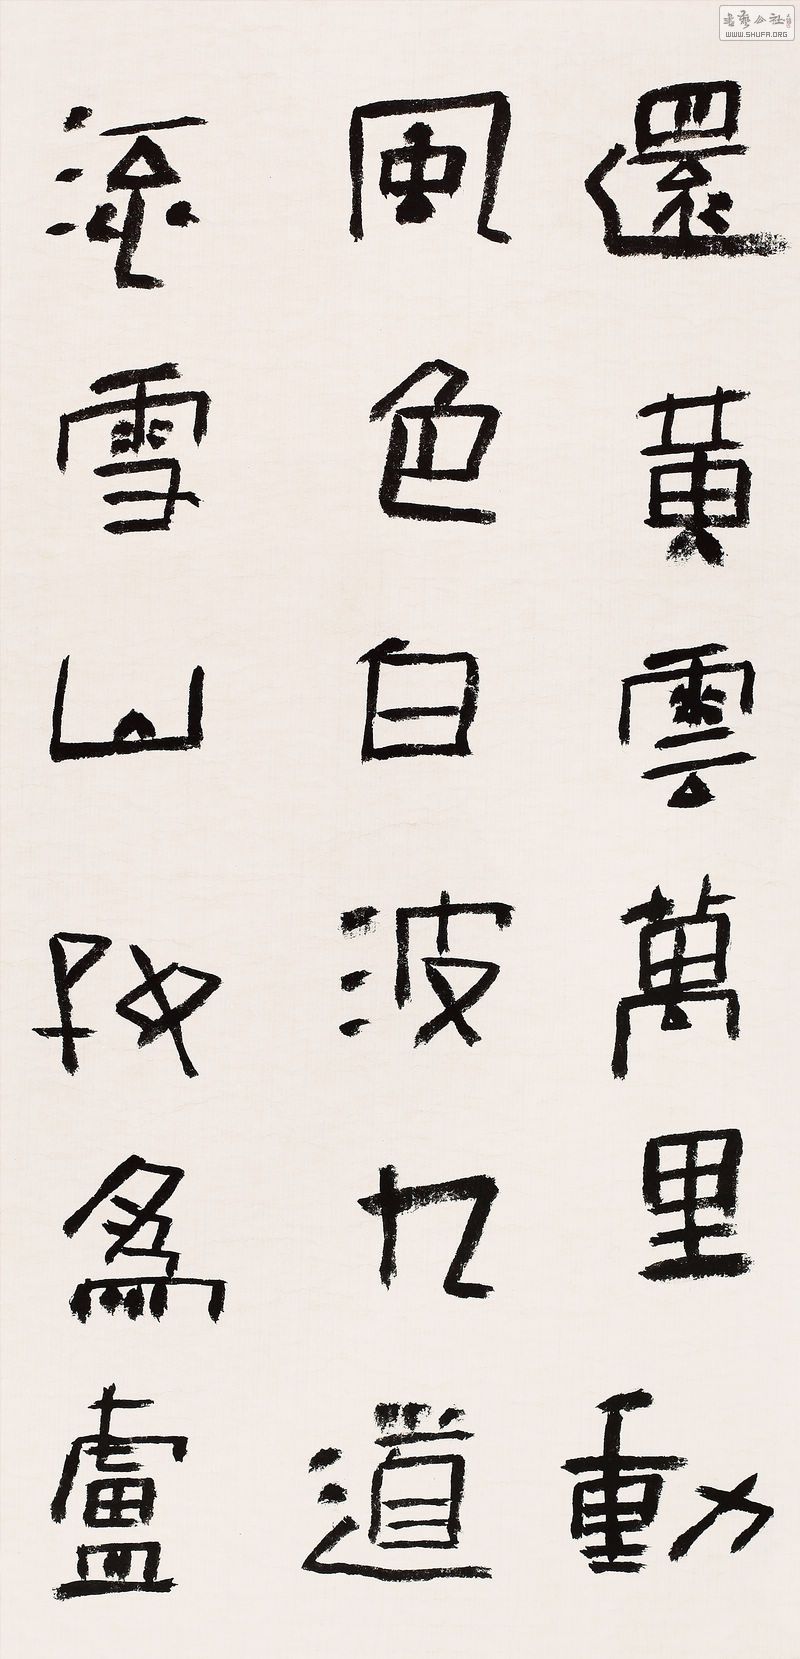 還黃雲萬里動
風色白波九道
流雪山好為盧
書藝公社
WWW.SHUFA.ORG